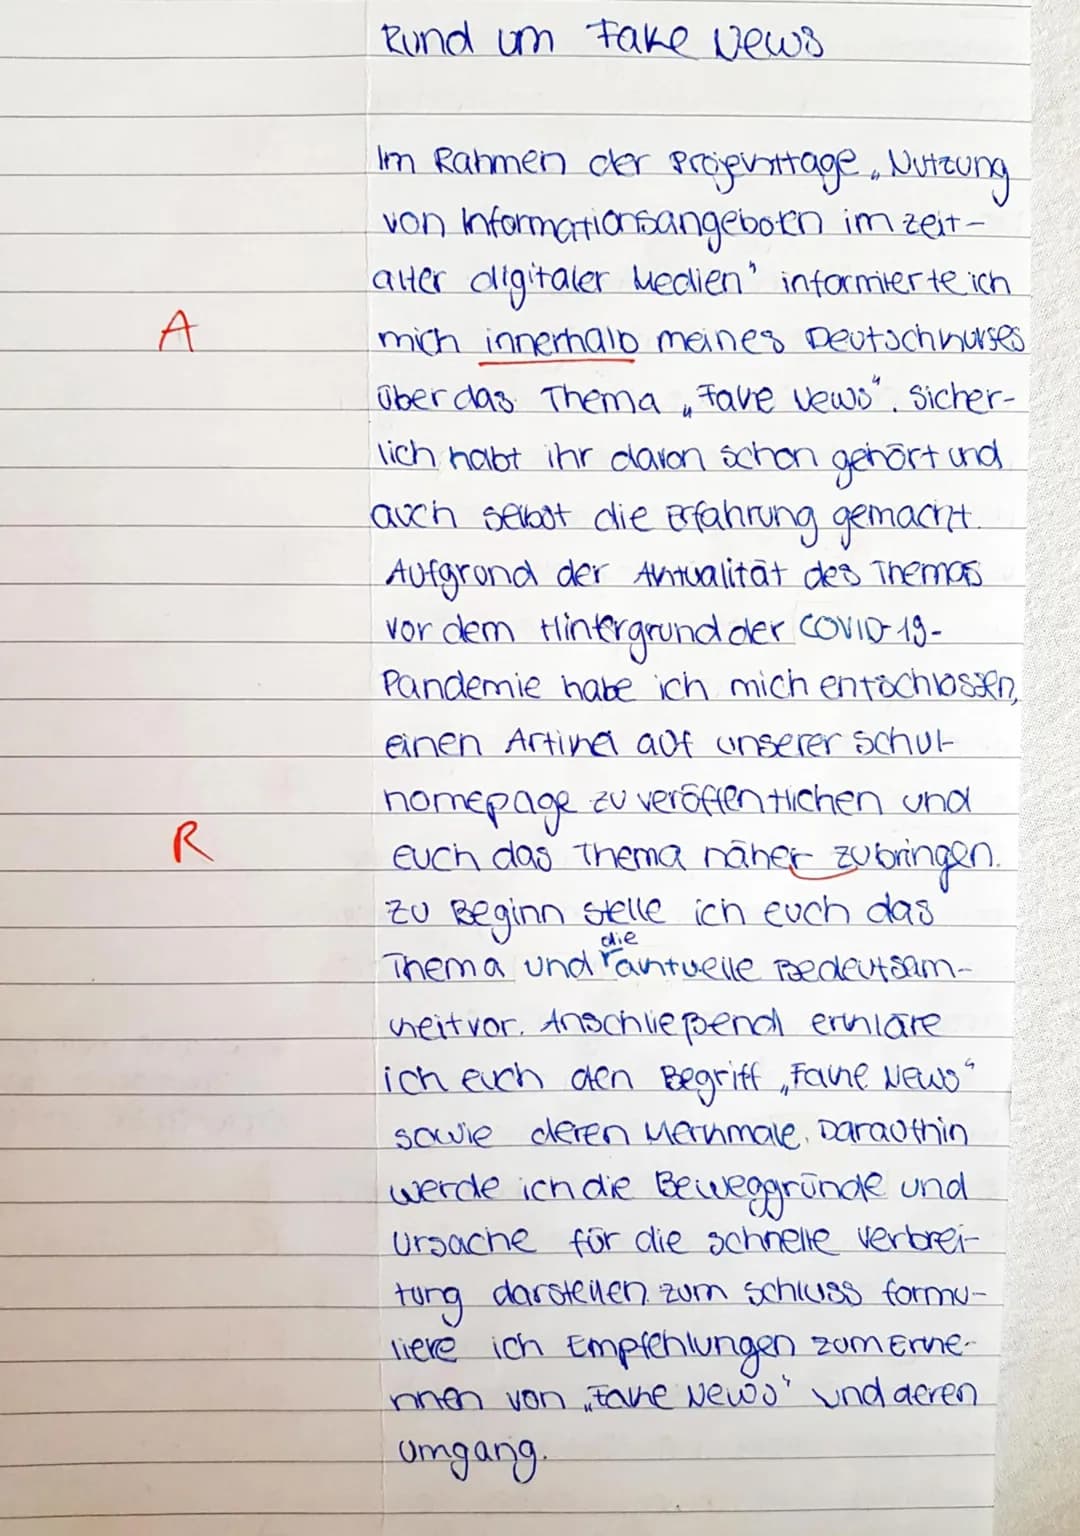 Rund um Fake News
Im Rahmen der Projekttage „Nutzung
von Informationsangeboten im Zeit-
alter digitaler Medien" informierte ich
A
mich innerhalb meines Deutschkurses
über das Thema „Fake News". Sicher-
lich habt ihr davon schon gehört und
auch selbst die Erfahrung gemacht.
Aufgrund der Aktualität des Themas
vor dem Hintergrund der COVID-19-
Pandemie habe ich mich entschlossen,
einen Artikel auf unserer Schul-
homepage zu veröffentlichen und
R
euch das Thema näher zubringen.
Zu Beginn stelle ich euch das
die
Thema und aktuelle Bedeutsam-
keit vor. Anschließend erkläre
ich euch den Begriff „Fake News"
sowie deren Merkmale. Daraufhin
werde ich die Beweggründe und
Ursache für die schnelle Verbrei-
tung darstellen. Zum Schluss formu-
liere ich Empfehlungen zum Erke-
nnen von „Fake News" und deren
Umgang.